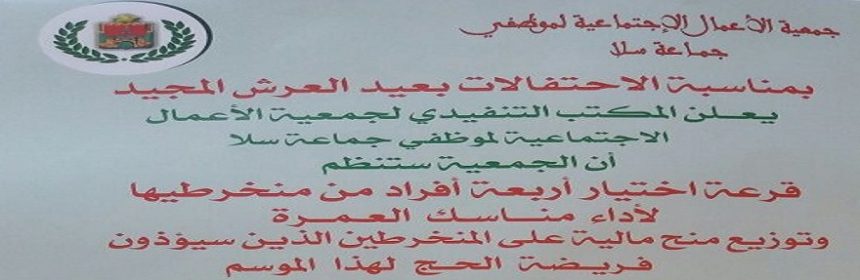 جمعية الأعمال الإجتماعية لموظفي
جماعة سلا
بمناسبة الاحتفالات بعيد العرش المجيد
يعلن المكتب التنفيدي لجمعية الأعمال
الاجتماعية لموظفي جماعة سلا
أن الجمعية ستنظم
قرعة اختيار أربعة أفراد من منخرطيها
لأداء مناسك العمرة
وتوزيع منح مالية على المنخرطين الذين سيؤذون
فريضة الحج لهذا الموسم